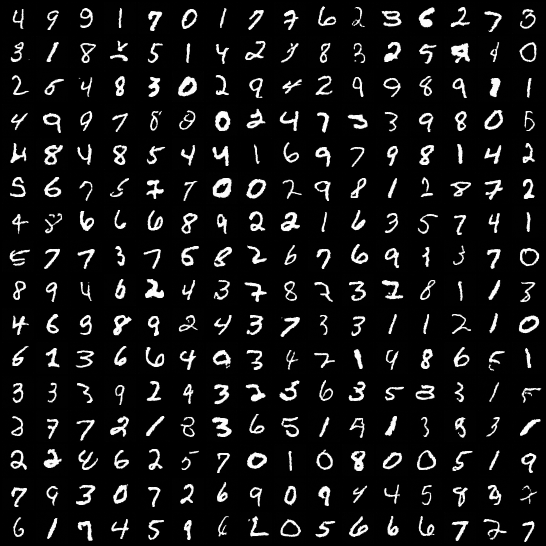 4 9 9 1 7 0 1 7 7 6 2 3 6 2 7 3
3 1 8 5 1 4 2 8 3 2 5 4 0
2 6 4 8 3 0 2 9 4 2 9 9 8 9 1 1
4 9 9 7 8 0 0 2 4 7 3 3 9 8 0 5
4 8 4 8 5 4 4 1 6 9 7 9 8 1 4 2
5 6 7 5 7 7 0 0 2 9 8 1 2 8 7 2
4 8 6 6 6 8 9 2 2 1 6 3 5 7 4 1
5 7 7 3 7 6 8 2 6 7 6 9 3 3 7 0
8 9 4 6 2 4 3 7 8 7 3 2 8 1 1 3
4 6 9 8 9 2 4 3 7 3 3 1 1 2 1 0
6 1 3 6 6 4 9 3 4 7 1 9 8 6 5 1
3 3 3 9 2 4 3 2 5 6 3 5 3 3 1 5
2 7 7 2 1 8 3 6 5 1 9 1 3 9 3 1
2 2 4 6 2 5 7 0 1 0 8 0 0 5 1 9
7 9 3 0 7 2 6 9 0 9 4 4 5 8 2
6 1 7 4 5 9 6 2 0 5 6 6 6 7 2 7